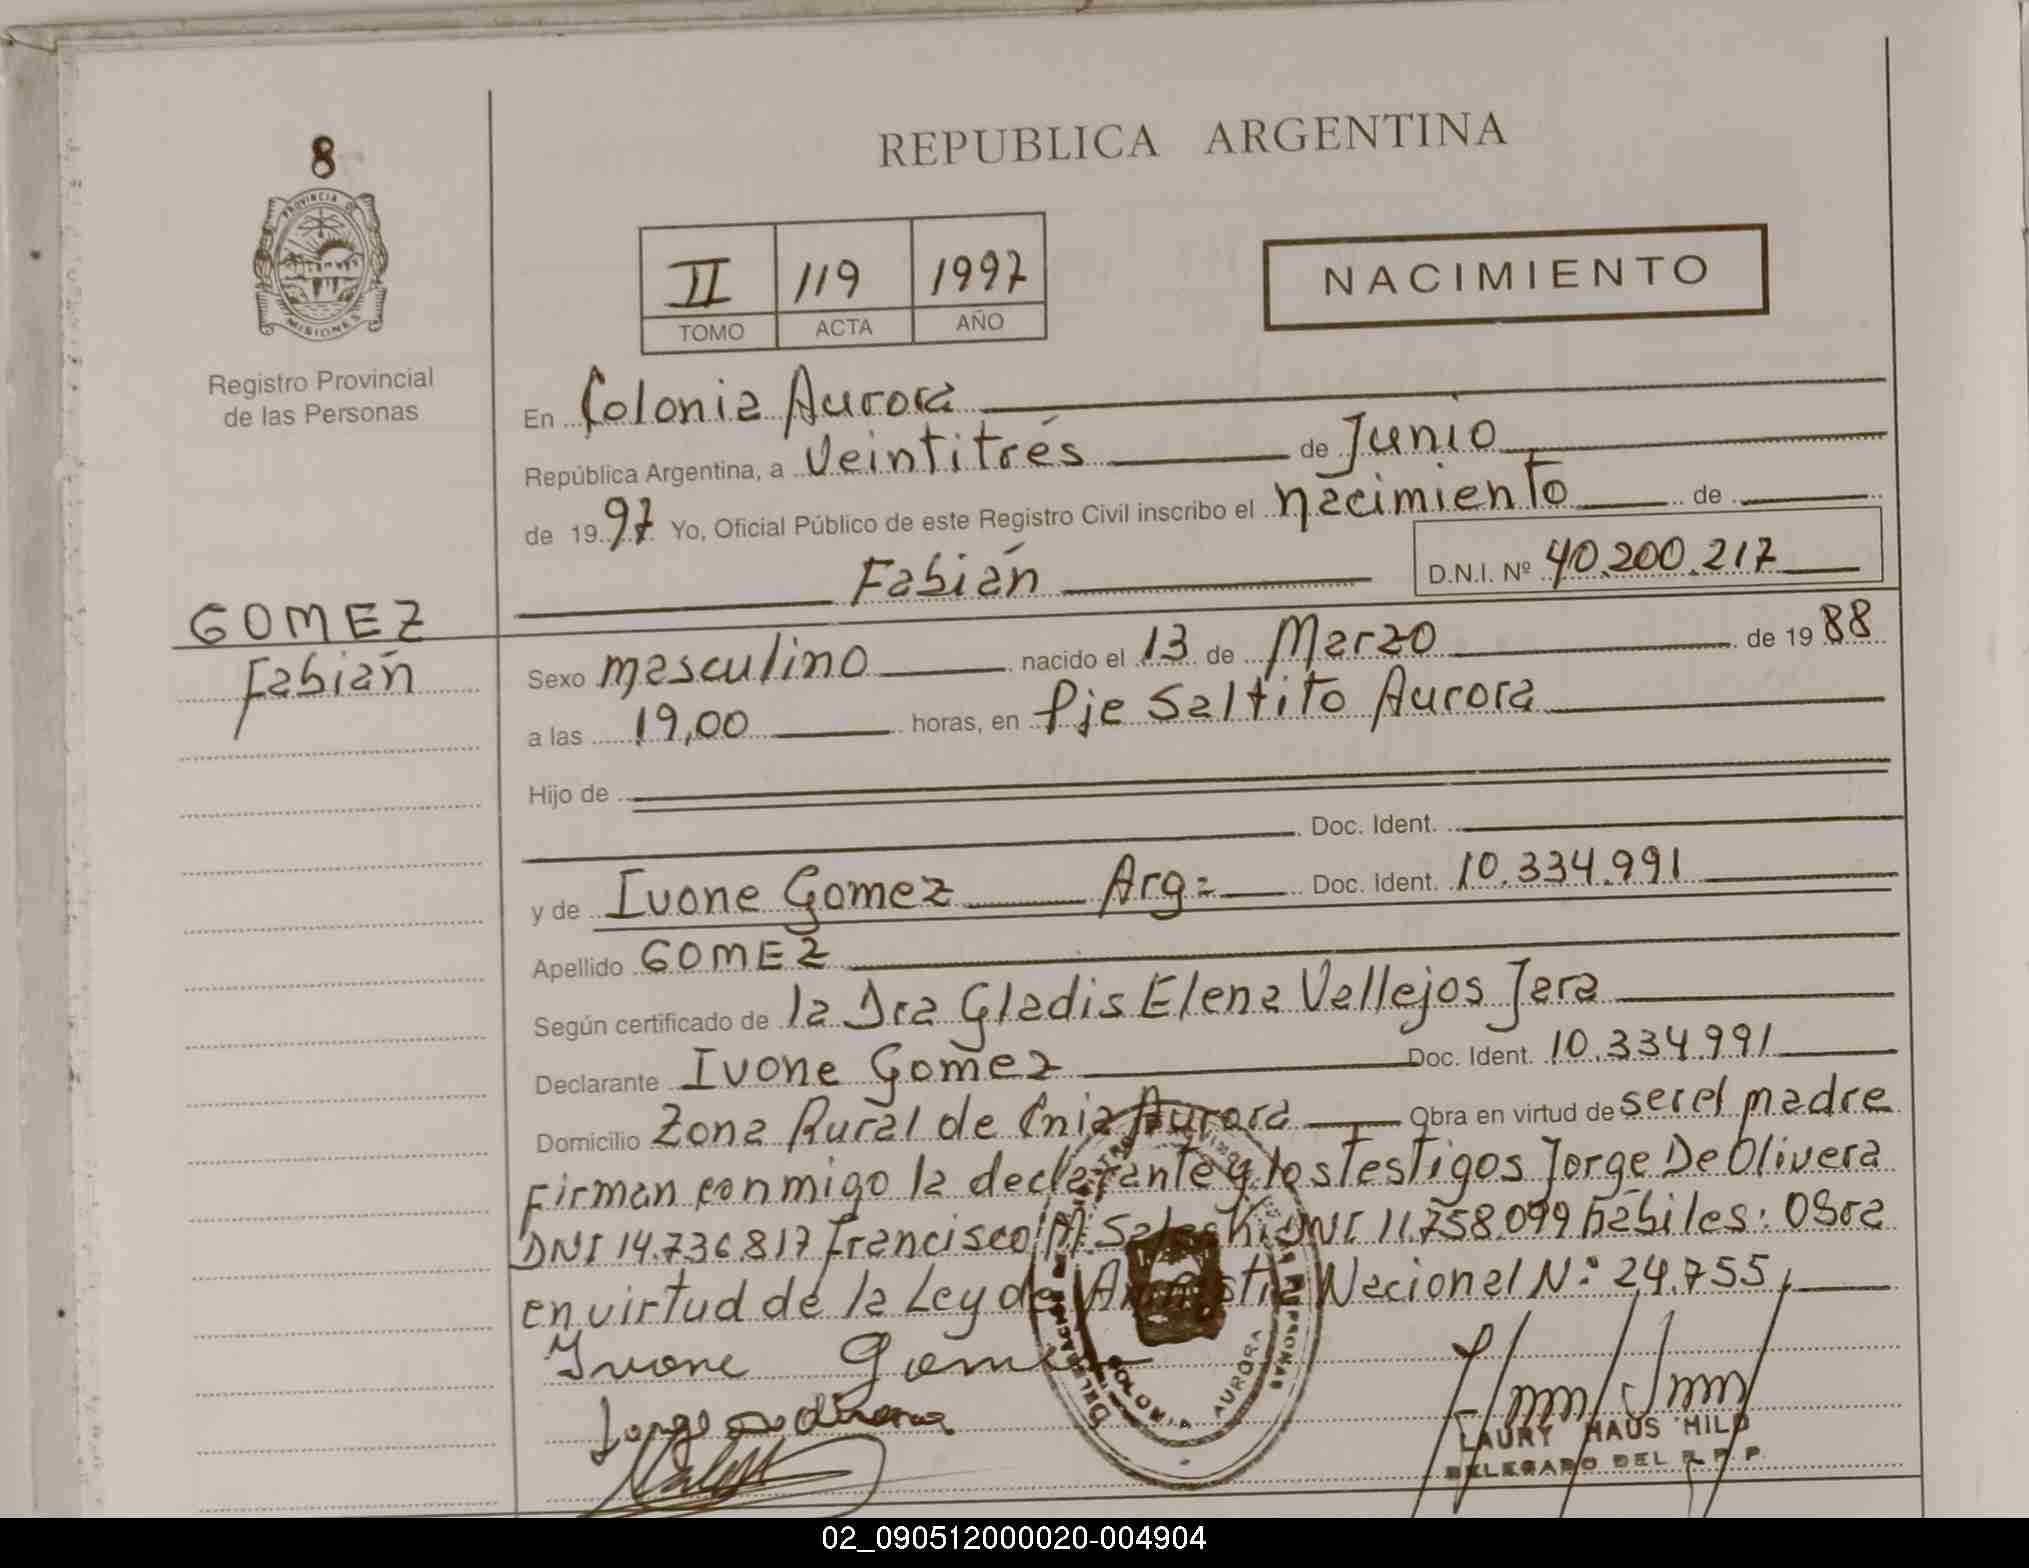 8
PROVINCIA DE
MISIONES
Registro Provincial
de las Personas
GOMEZ
Fabián
REPUBLICA ARGENTINA
II 119 1997
TOMO ACTA AÑO
NACIMIENTO
En Colonia Aurora
República Argentina, a Veintitrés de Junio
de 1997 Yo, Oficial Público de este Registro Civil inscribo el nacimiento de
Fabián D.N.I. Nº 40.200.217
Sexo masculino nacido el 13 de Marzo de 1988
a las 19,00 horas, en Pje Saltito Aurora
Hijo de
Doc. Ident.
y de Ivone Gomez Arg: Doc. Ident. 10.334.991
Apellido GOMEZ
Según certificado de la Dra Gladis Elena Vallejos Jara
Declarante Ivone Gomez Doc. Ident. 10.334.991
Domicilio Zona Rural de Cnia Aurora Obra en virtud de ser el madre
Firman conmigo la declarante y los Testigos Jorge De Olivera
DNI 14.736.817 Francisco DNI 11.758.099 hábiles: Obra
en virtud de la Ley de Amnistia Nacional Nº 24.755,
Ivone Gomez
COLONIA AURORA
LAURY HAUS MILD
DELEGADO DEL R.P.P.
02_090512000020-004904